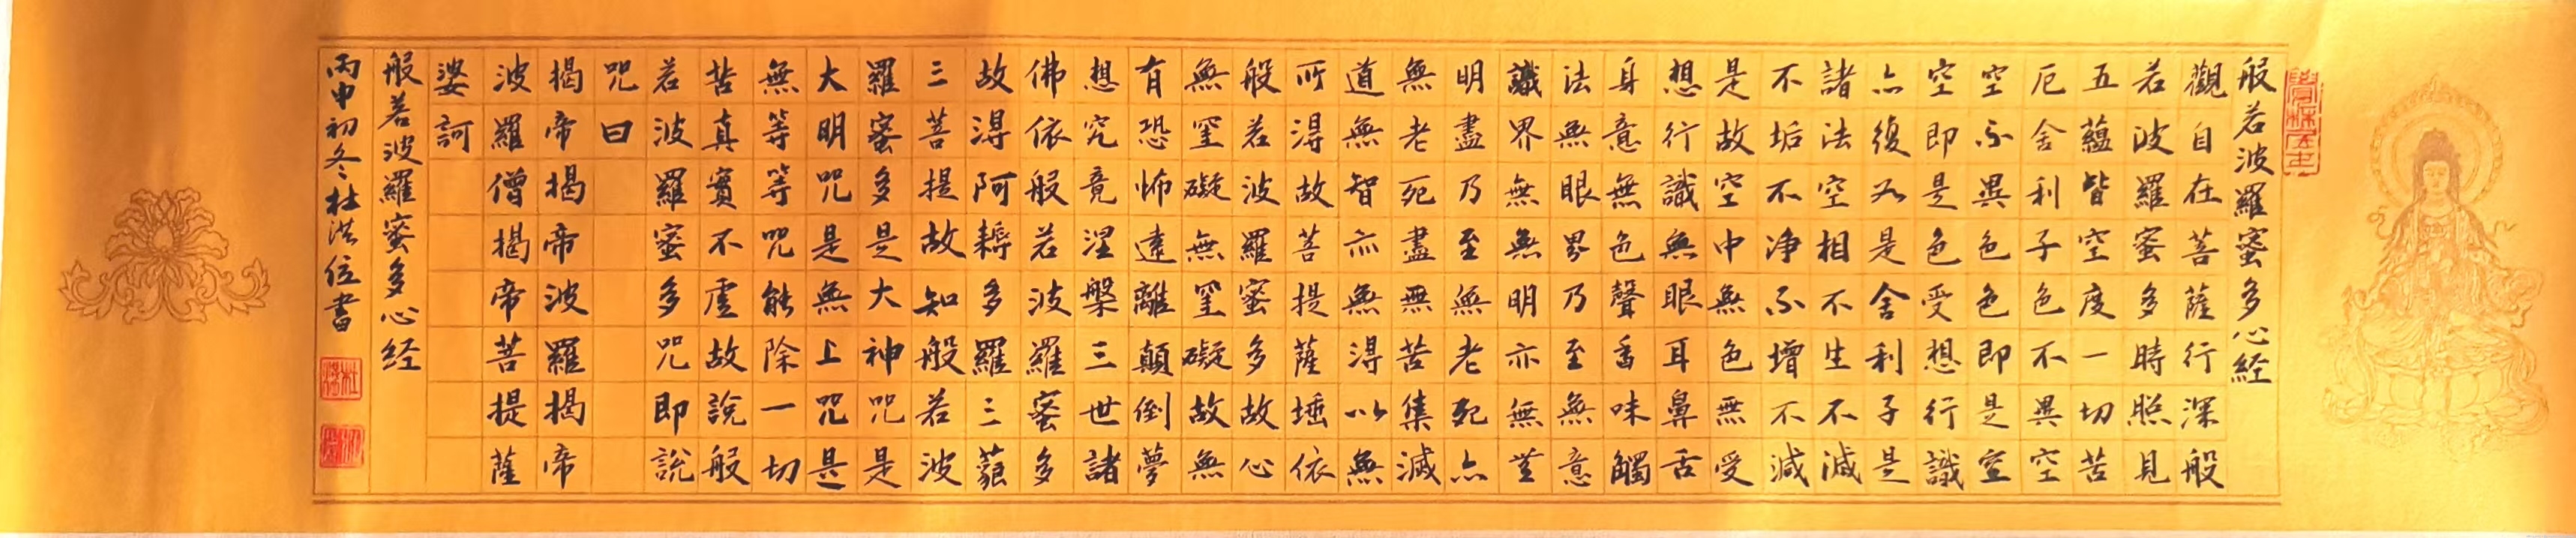 般若波羅蜜多心經
觀自在菩薩行深般
若波羅蜜多時照見
五蘊皆空度一切苦
厄舍利子色不異空
空不異色色即是空
空即是色受想行識
亦復如是舍利子是
諸法空相不生不滅
不垢不净不增不減
是故空中無色無受
想行識無眼耳鼻舌
身意無色聲香味觸
法無眼界乃至無意
識界無無明亦無無
明盡乃至無老死亦
無老死盡無苦集滅
道無智亦無得以無
所得故菩提薩埵依
般若波羅蜜多故心
無罣礙無罣礙故無
有恐怖遠離顛倒夢
想究竟涅槃三世諸
佛依般若波羅蜜多
故得阿耨多羅三藐
三菩提故知般若波
羅蜜多是大神咒是
大明咒是無上咒是
無等等咒能除一切
苦真實不虛故說般
若波羅蜜多咒即說
咒曰
揭帝揭帝波羅揭帝
波羅僧揭帝菩提薩
婆訶
般若波羅蜜多心经
丙申初冬杜洪位書